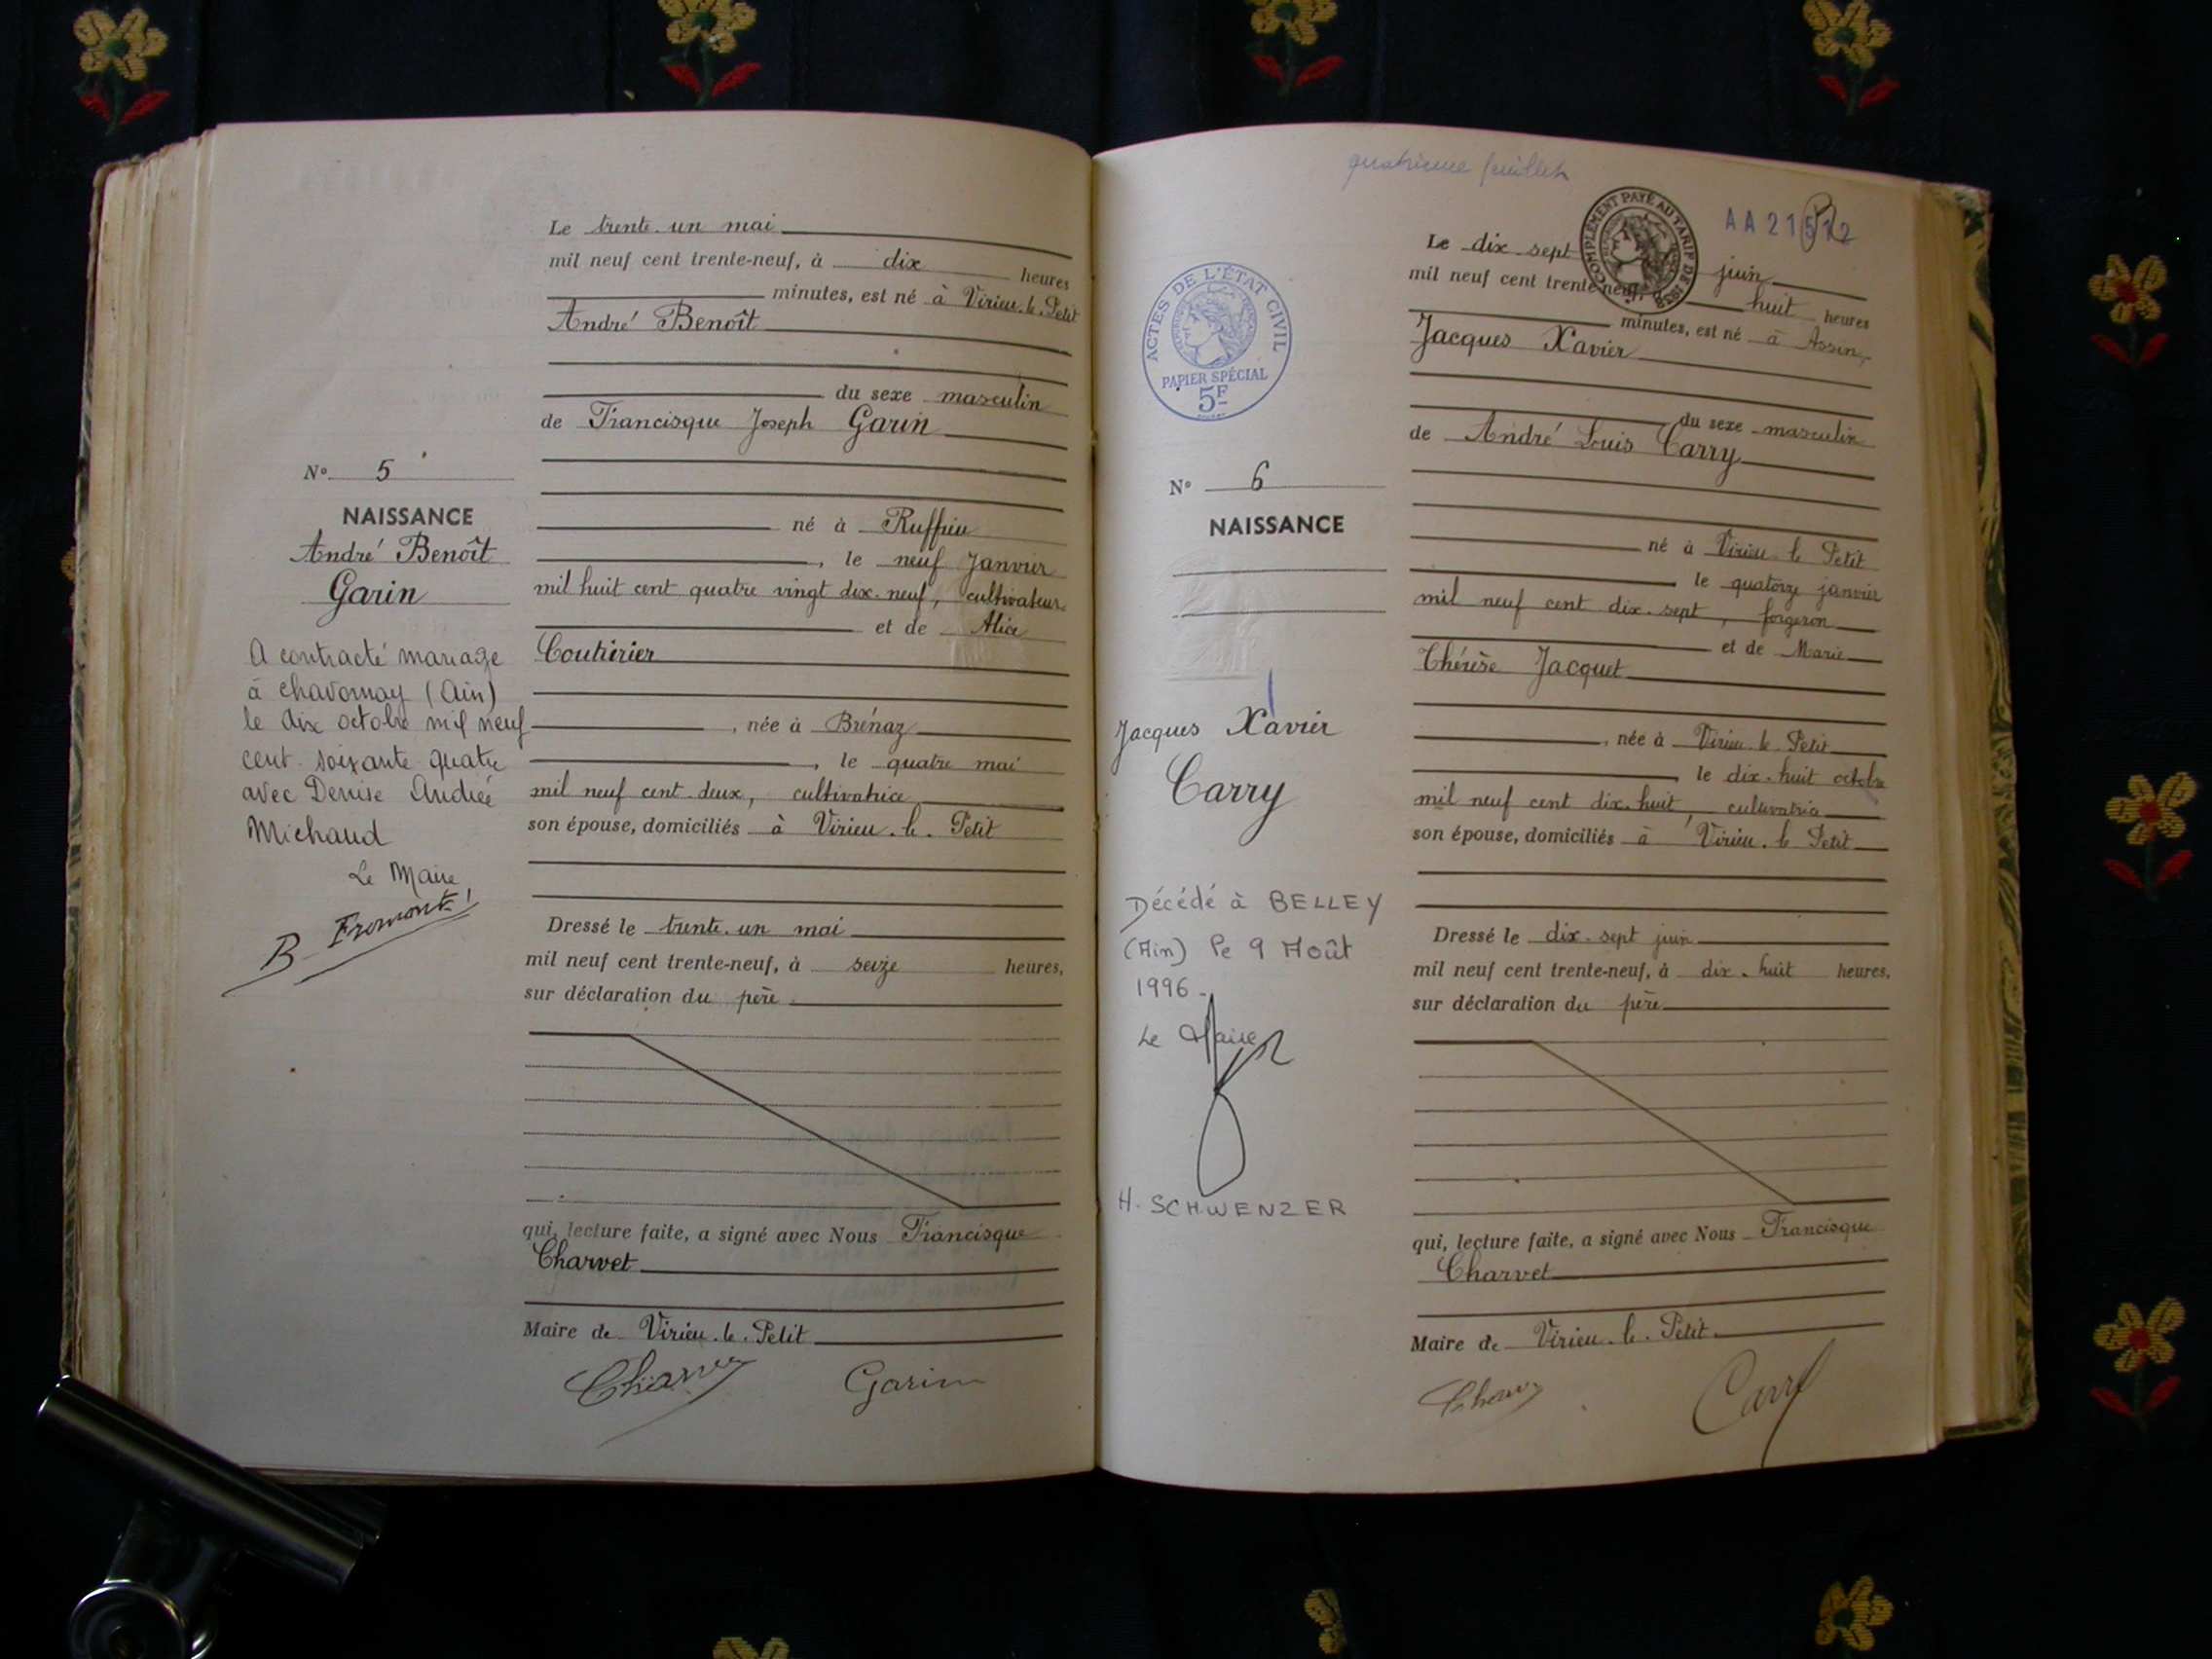 Le trente. un mai
mil neuf cent trente-neuf, à dix heures
minutes, est né à Virieu-le-Petit
André Benoît
du sexe masculin
de Francisque Joseph Garin
né à Ruffieu
, le neuf Janvier
mil huit cent quatre vingt dix-neuf, cultivateur
et de Alice
Couturier
, née à Brénaz
, le quatre mai
mil neuf cent deux, cultivatrice
son épouse, domiciliés à Virieu-le-Petit
Dressé le trente. un mai
mil neuf cent trente-neuf, à seize heures,
sur déclaration du père
qui, lecture faite, a signé avec Nous Francisque
Charvet
Maire de Virieu-le-Petit
Charvet Garin
N° 5
NAISSANCE
André Benoît
Garin
A contracté mariage
à Chavornay (Ain)
le dix octobre mil neuf
cent soixante quatre
avec Denise Andrée
Michaud
Le Maire
B. Fromont
quatrième feuillet
COMPLÉMENT PAYÉ AU TARIF DE 1938
AA 21512
Le dix sept juin
mil neuf cent trente-neuf, à huit heures
minutes, est né à Assin,
Jacques Xavier
du sexe masculin
de André Louis Carry
né à Virieu le Petit
le quatorze janvier
mil neuf cent dix-sept, forgeron
et de Marie
Thérèse Jacquet
, née à Virieu-le-Petit
, le dix-huit octobre
mil neuf cent dix-huit, cultivatrice
son épouse, domiciliés à Virieu-le Petit
Dressé le dix-sept juin
mil neuf cent trente-neuf, à dix-huit heures,
sur déclaration du père
qui, lecture faite, a signé avec Nous Francisque
Charvet
Maire de Virieu-le-Petit
Charvet Carry
ACTES DE L'ÉTAT CIVIL
PAPIER SPÉCIAL
5F
N° 6
NAISSANCE
Jacques Xavier
Carry
Décédé à BELLEY
(Ain) le 9 Août
1996
Le Maire
H. SCHWENZER